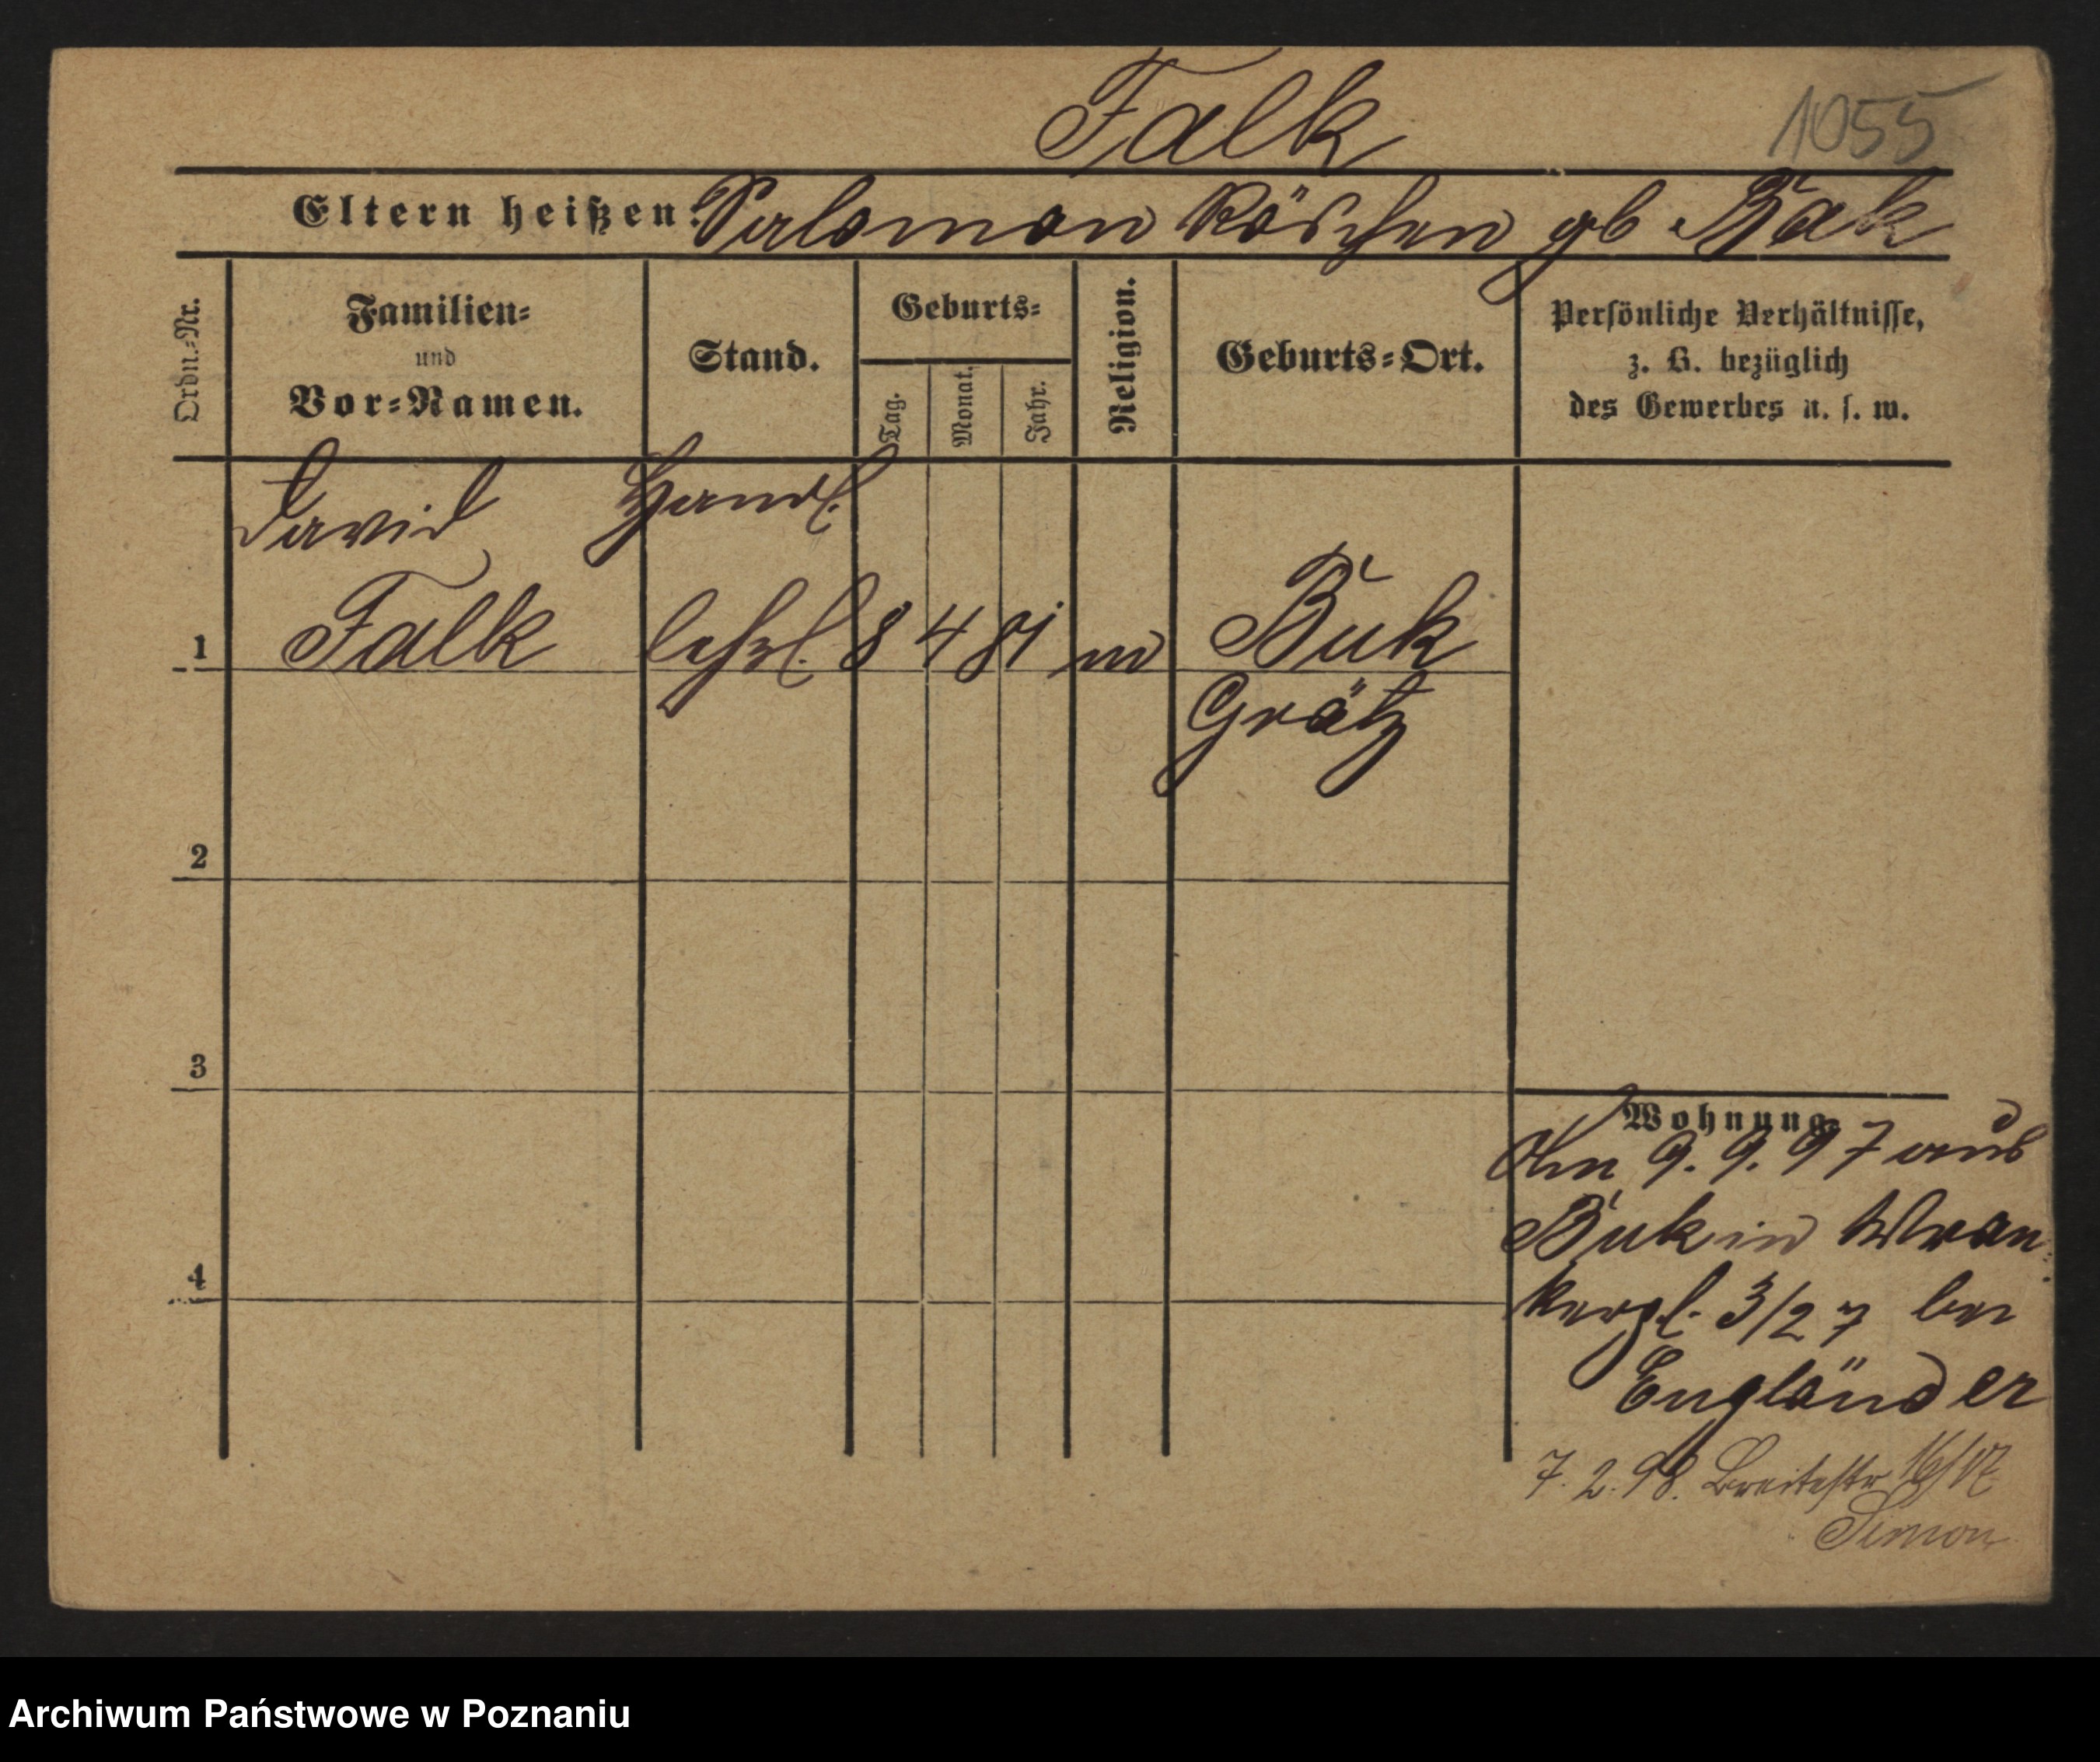 Falk
1055
Eltern heißen: Salomon Röschen gb Bäk
Ordn.-Nr.
Familien-
und
Vor-Namen.
Stand.
Geburts-
Tag.
Monat.
Jahr.
Religion.
Geburts-Ort.
Persönliche Verhältnisse,
z. B. bezüglich
des Gewerbes u. s. w.
David Handl.
1 Falk lehrl. 8 4 81 m Buk
Grätz
2
3
4
Wohnung.
Am 9. 9. 97 aus
Buk in Wron-
kerpl. 3/27 bei
Engländer
7. 2. 98. Breitestr 16/17
Simon
Archiwum Państwowe w Poznaniu